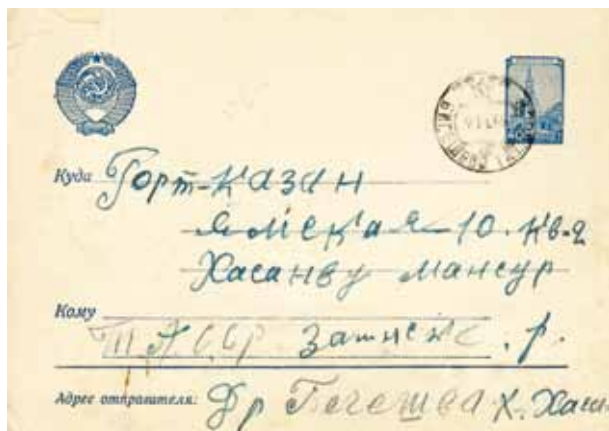 Куда Горт-Казан
Ямская 10. кв-2
Хасанву Мансур
Кому
Т.А.С.С.Р Заинск. р.
Адрес отправителя: Др Бегешва Х. Хаси